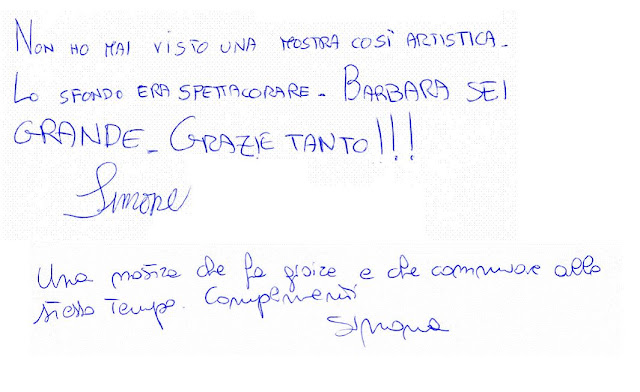 NON HO MAI VISTO UNA MOSTRA COSÌ ARTISTICA.
LO SFONDO ERA SPETTACORARE. BARBARA SEI
GRANDE. GRAZIE TANTO!!!
Simone
Una mostra che fa gioire e che commuove allo
stesso tempo. Complimenti
Simona